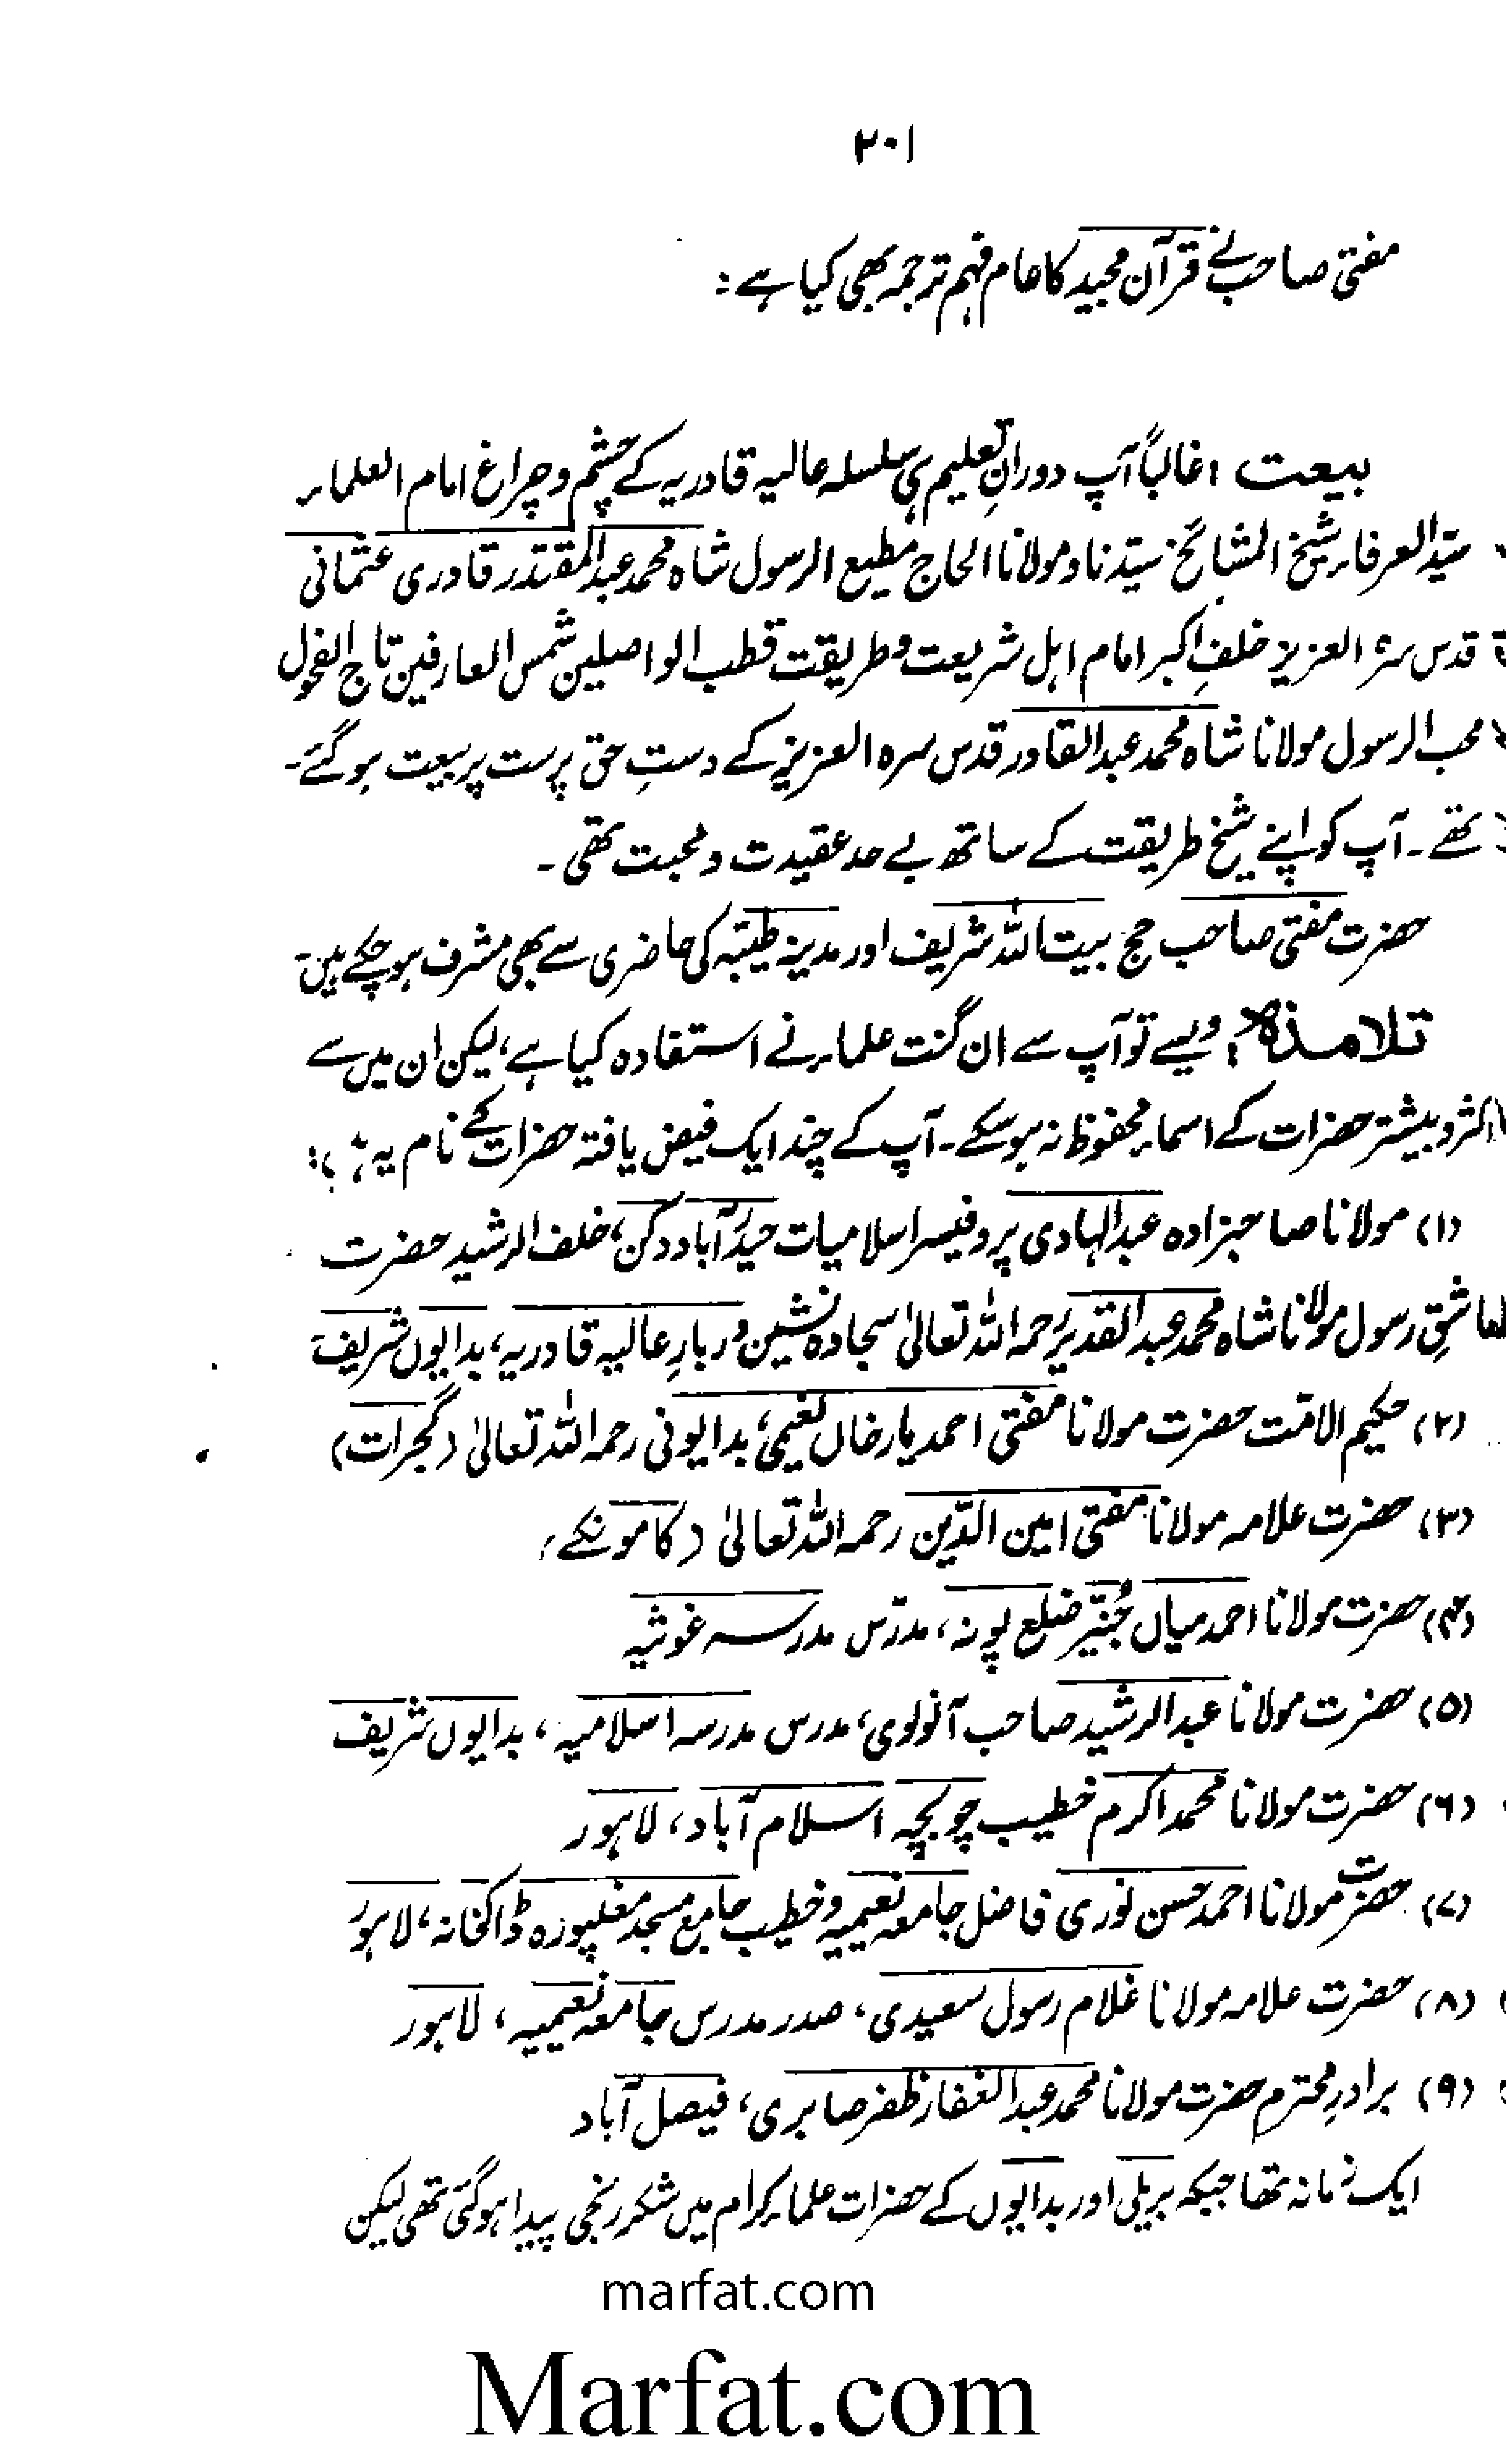 ۲۰۱
مفتی صاحب نے قرآن مجید کا عام فہم ترجمہ بھی کیا ہے :
بیعت : غالباً آپ دورانِ تعلیم ہی سلسلہ عالیہ قادریہ کے چشم و چراغ امام العلماء
سیّد العرفاء شیخ المشائخ سیّدنا و مولانا الحاج مطیع الرسول شاہ محمد عبدالمقتدر قادری عثمانی
قدس سرہ العزیز خلفِ اکبر امام اہل شریعت و طریقت قطب الواصلین شمس العارفین تاج الفحول
محب الرسول مولانا شاہ محمد عبدالقادر قدس سرہ العزیز کے دستِ حق پرست پر بیعت ہو گئے۔
تھے۔ آپ کو اپنے شیخ طریقت کے ساتھ بے حد عقیدت و محبت تھی۔
حضرت مفتی صاحب حج بیت اللہ شریف اور مدینہ طیبّہ کی حاضری سے بھی مشرف ہو چکے ہیں۔
تلامذہ : ویسے تو آپ سے ان گنت علماء نے استفادہ کیا ہے، لیکن ان میں سے
اکثر و بیشتر حضرات کے اسماء محفوظ نہ ہو سکے۔ آپ کے چند ایک فیض یافتہ حضرات کے نام یہ :
(۱) مولانا صاحبزادہ عبدالہادی پروفیسر اسلامیات حیدرآباد دکن، خلف الرشید حضرت
عاشقِ رسول مولانا شاہ محمد عبدالقدیر رحمہ اللہ تعالیٰ سجادہ نشین دربارِ عالیہ قادریہ، بدایوں شریف۔
(۲) حکیم الامّت حضرت مولانا مفتی احمد یار خاں نعیمی، بدایونی رحمہ اللہ تعالیٰ (گجرات)
(۳) حضرت علامہ مولانا مفتی امین الدّین رحمہ اللہ تعالیٰ (کامونکے)
(۴) حضرت مولانا احمد میاں جُنیّر ضلع پونہ، مدرّس مدرسہ غوثیہ
(۵) حضرت مولانا عبدالرشید صاحب آنولوی، مدرس مدرسہ اسلامیہ، بدایوں شریف
(۶) حضرت مولانا محمد اکرم خطیب چوبچہ اسلام آباد، لاہور
(۷) حضرت مولانا احمد حسن نوری فاضل جامعہ نعیمیہ و خطیب جامع مسجد مغلپورہ ڈاکخانہ، لاہور
(۸) حضرت علامہ مولانا غلام رسول سعیدی، صدر مدرس جامعہ نعیمیہ، لاہور
(۹) برادرِ محترم حضرت مولانا محمد عبدالغفار ظفر صابری، فیصل آباد
ایک زمانہ تھا جبکہ بریلی اور بدایوں کے حضرات علماء کرام میں شکر رنجی پیدا ہو گئی تھی لیکن
marfat.com
Marfat.com